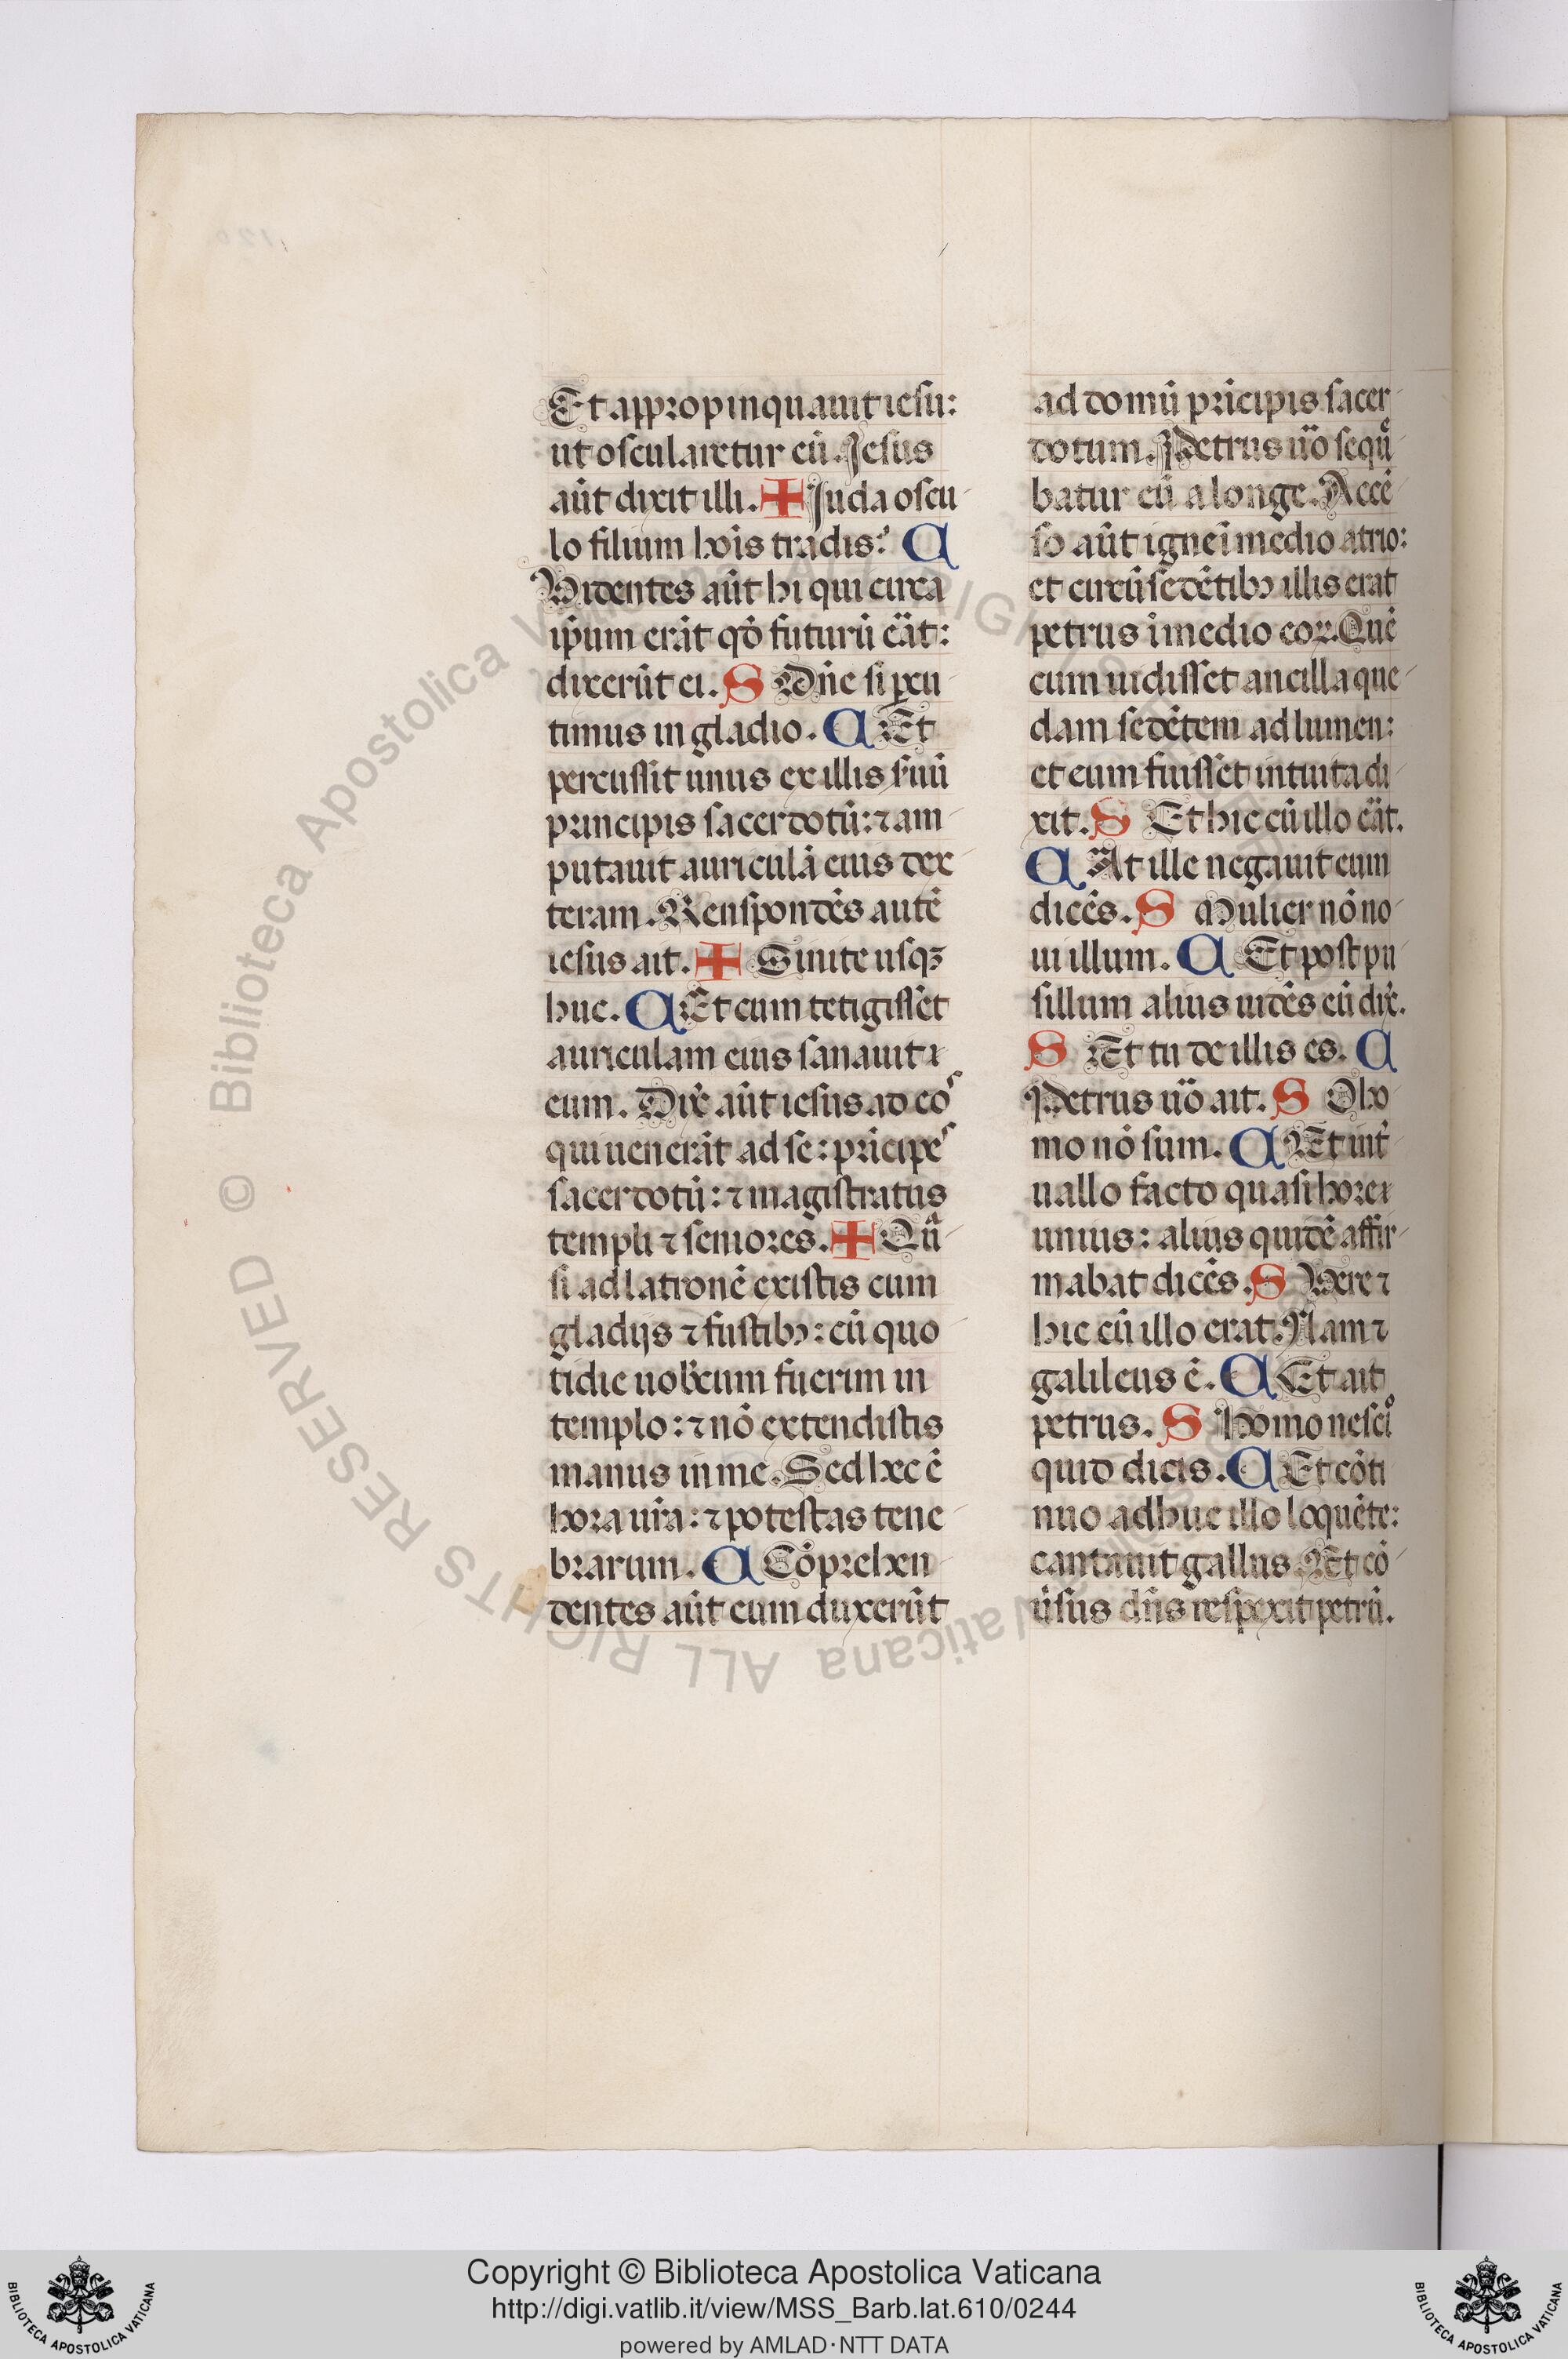 Et appropinquauit iesu:
ut oscularetur eū. Jesus
aūt dixit illi. ✠ Juda oscu
lo filium hoīs tradis? C
Videntes aūt hi qui circa
ip̄um erāt qđ futurū eāt:
dixerūt ei. S Dn̄e si ꝑcu
timus in gladio. C Et
percussit unus ex illis suū
principis sacerdotū: ⁊ am
putauit auriculā eius dex
teram. Renspondēs autē
iesus ait. ✠ Sinite usqꝫ
huc. C Et cum tetigisset
auriculam eius sanauit
eum. Dix̄ aūt iesus ad eos
qui uenerāt ad se: prīcipes
sacerdotū: ⁊ magistratus
templi ⁊ seniores. ✠ Quā
si ad latronē existis cum
gladijs ⁊ fustibꝫ: cū quo
tidie uobcum fuerim in
templo: ⁊ nō extendistis
manus in me. Sed hec ē
hora ur̄a: ⁊ potestas tene
brarum. C Cōprehen
dentes aūt eum duxerūt
ad domū prīcipis sacer
dotum. Petrus ūo sequē
batur eū a longe. Accē
so aūt igne ī medio atrio:
et circūsedētibꝫ illis erat
petrus ī medio eoꝝ. Quē
cum uidisset ancilla que
dam sedētem ad lumen:
et eum fuisset intuita di
xit. S Et hic cū illo eāt.
C At ille negauit eum
dicēs. S Mulier nō no
ui illum. C Et post pu
sillum alius uidēs eū dix̄.
S Et tu de illis es. C
Petrus ūo ait. S O ho
mo nō sum. C Et int̄
uallo facto quasi hore
unius: alius quidē affir
mabat dicēs. S Vere ⁊
hic cū illo erat. Nam ⁊
galileus ē. C Et ait
petrus. S Homo nescio
quid dicis. C Et cōti
nuo adhuc illo loquēte:
cantauit gallus. Et cō
ūsus dn̄s respexit petrū.
© Biblioteca Apostolica Vaticana ALL RIGHTS RESERVED
Copyright © Biblioteca Apostolica Vaticana
http://digi.vatlib.it/view/MSS_Barb.lat.610/0244
powered by AMLAD·NTT DATA
BIBLIOTECA APOSTOLICA VATICANA
BIBLIOTECA APOSTOLICA VATICANA